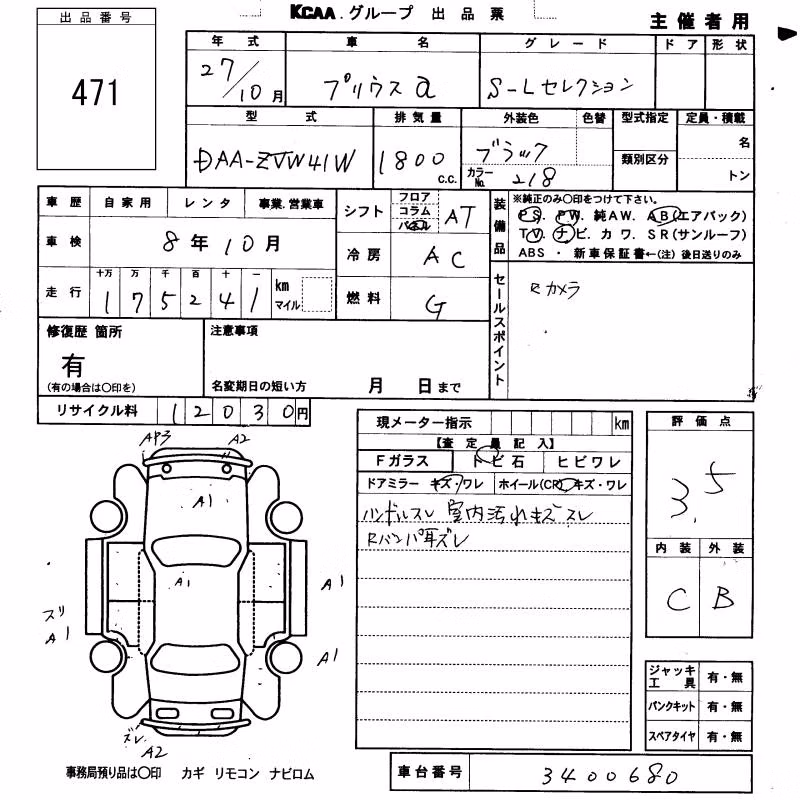 KCAA.グループ 出品票
主催者用
出品番号
471
年式 車名 グレード ドア 形状
27/10月 プリウスα S-Lセレクション
型式 排気量 外装色 色替 型式指定 定員・積載
DAA-ZVW41W 1800 c.c. ブラック 名
カラーNo. 218 類別区分 トン
車歴 自家用 レンタ 事業、営業車
車検 8年10月
走行 十万 万 千 百 十 一
175241 km マイル
シフト フロア コラム パネル AT
冷房 AC
燃料 G
装備品
※純正のみ○印をつけて下さい。
PS. PW. 純AW. AB(エアバック)
TV. ナビ. カワ. SR(サンルーフ)
ABS ・ 新車保証書←(注) 後日送りのみ
セールスポイント
Rカメラ
修復歴 箇所
有
(有の場合は○印を)
注意事項
名変期日の短い方 月 日まで
リサイクル料 12030円
現メーター指示 km
【査定員記入】
Fガラス トビ石 ヒビワレ
ドアミラー キズ・ワレ ホイール(CR)キズ・ワレ
ハンドルスレ 室内汚れキズスレ
Rバンパ耳ズレ
評価点
3.5
内装 外装
C B
AP3 A2
A1
A1
A1
スリ
A1
A1
ズレ
A2
ジャッキ工具 有・無
パンクキット 有・無
スペアタイヤ 有・無
事務局預り品は○印 カギ リモコン ナビロム
車台番号 3400680